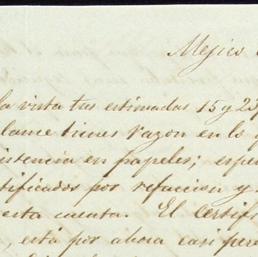 Mejico
la vista tus estimadas 15 y 23
tienes razon en lo q
istencia en papeles; espe
tificados por refaccion y
esta cuenta. El Certifi
, está por ahora casi per